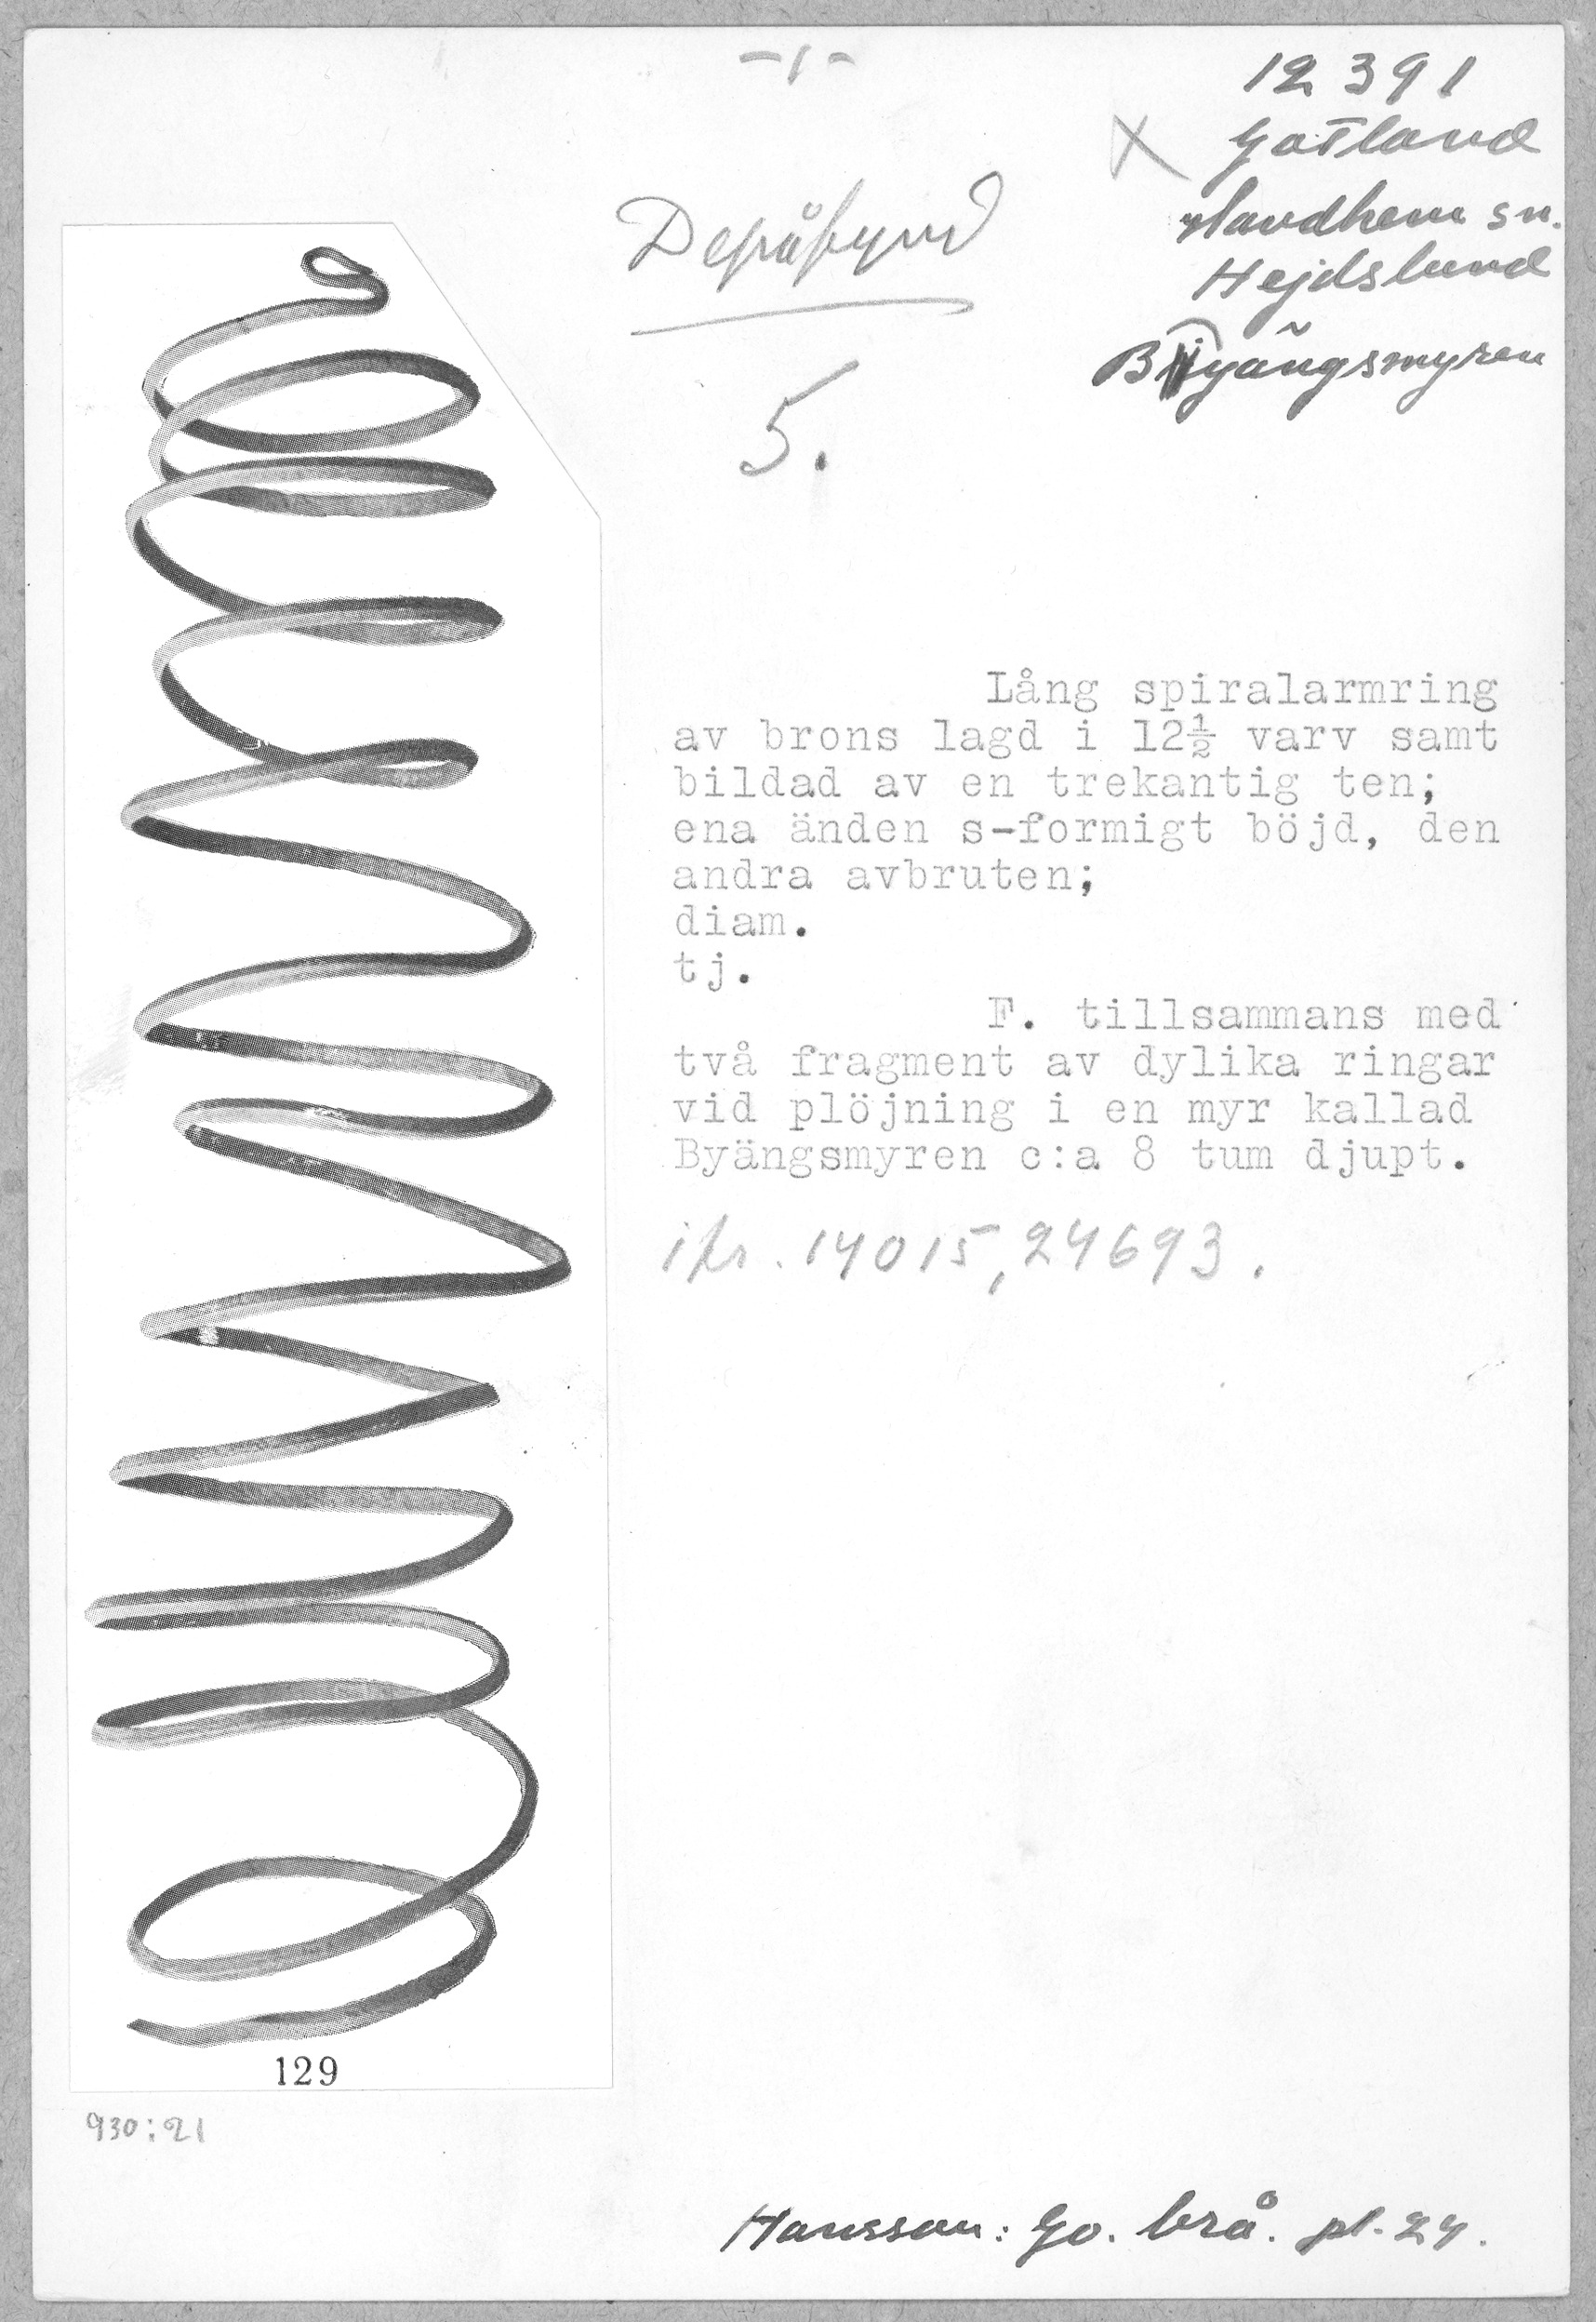 -1-
12391
X Gotland
Havdhem sn.
Hejdslund
Byängsmyren
Depåfynd
5.
Lång spiralarmring
av brons lagd i 12½ varv samt
bildad av en trekantig ten;
ena änden s-formigt böjd, den
andra avbruten;
diam.
tj.
F. tillsammans med
två fragment av dylika ringar
vid plöjning i en myr kallad
Byängsmyren c:a 8 tum djupt.
jfr. 14015, 24693.
129
930:21
Hansson: Go. brå. pl. 24.